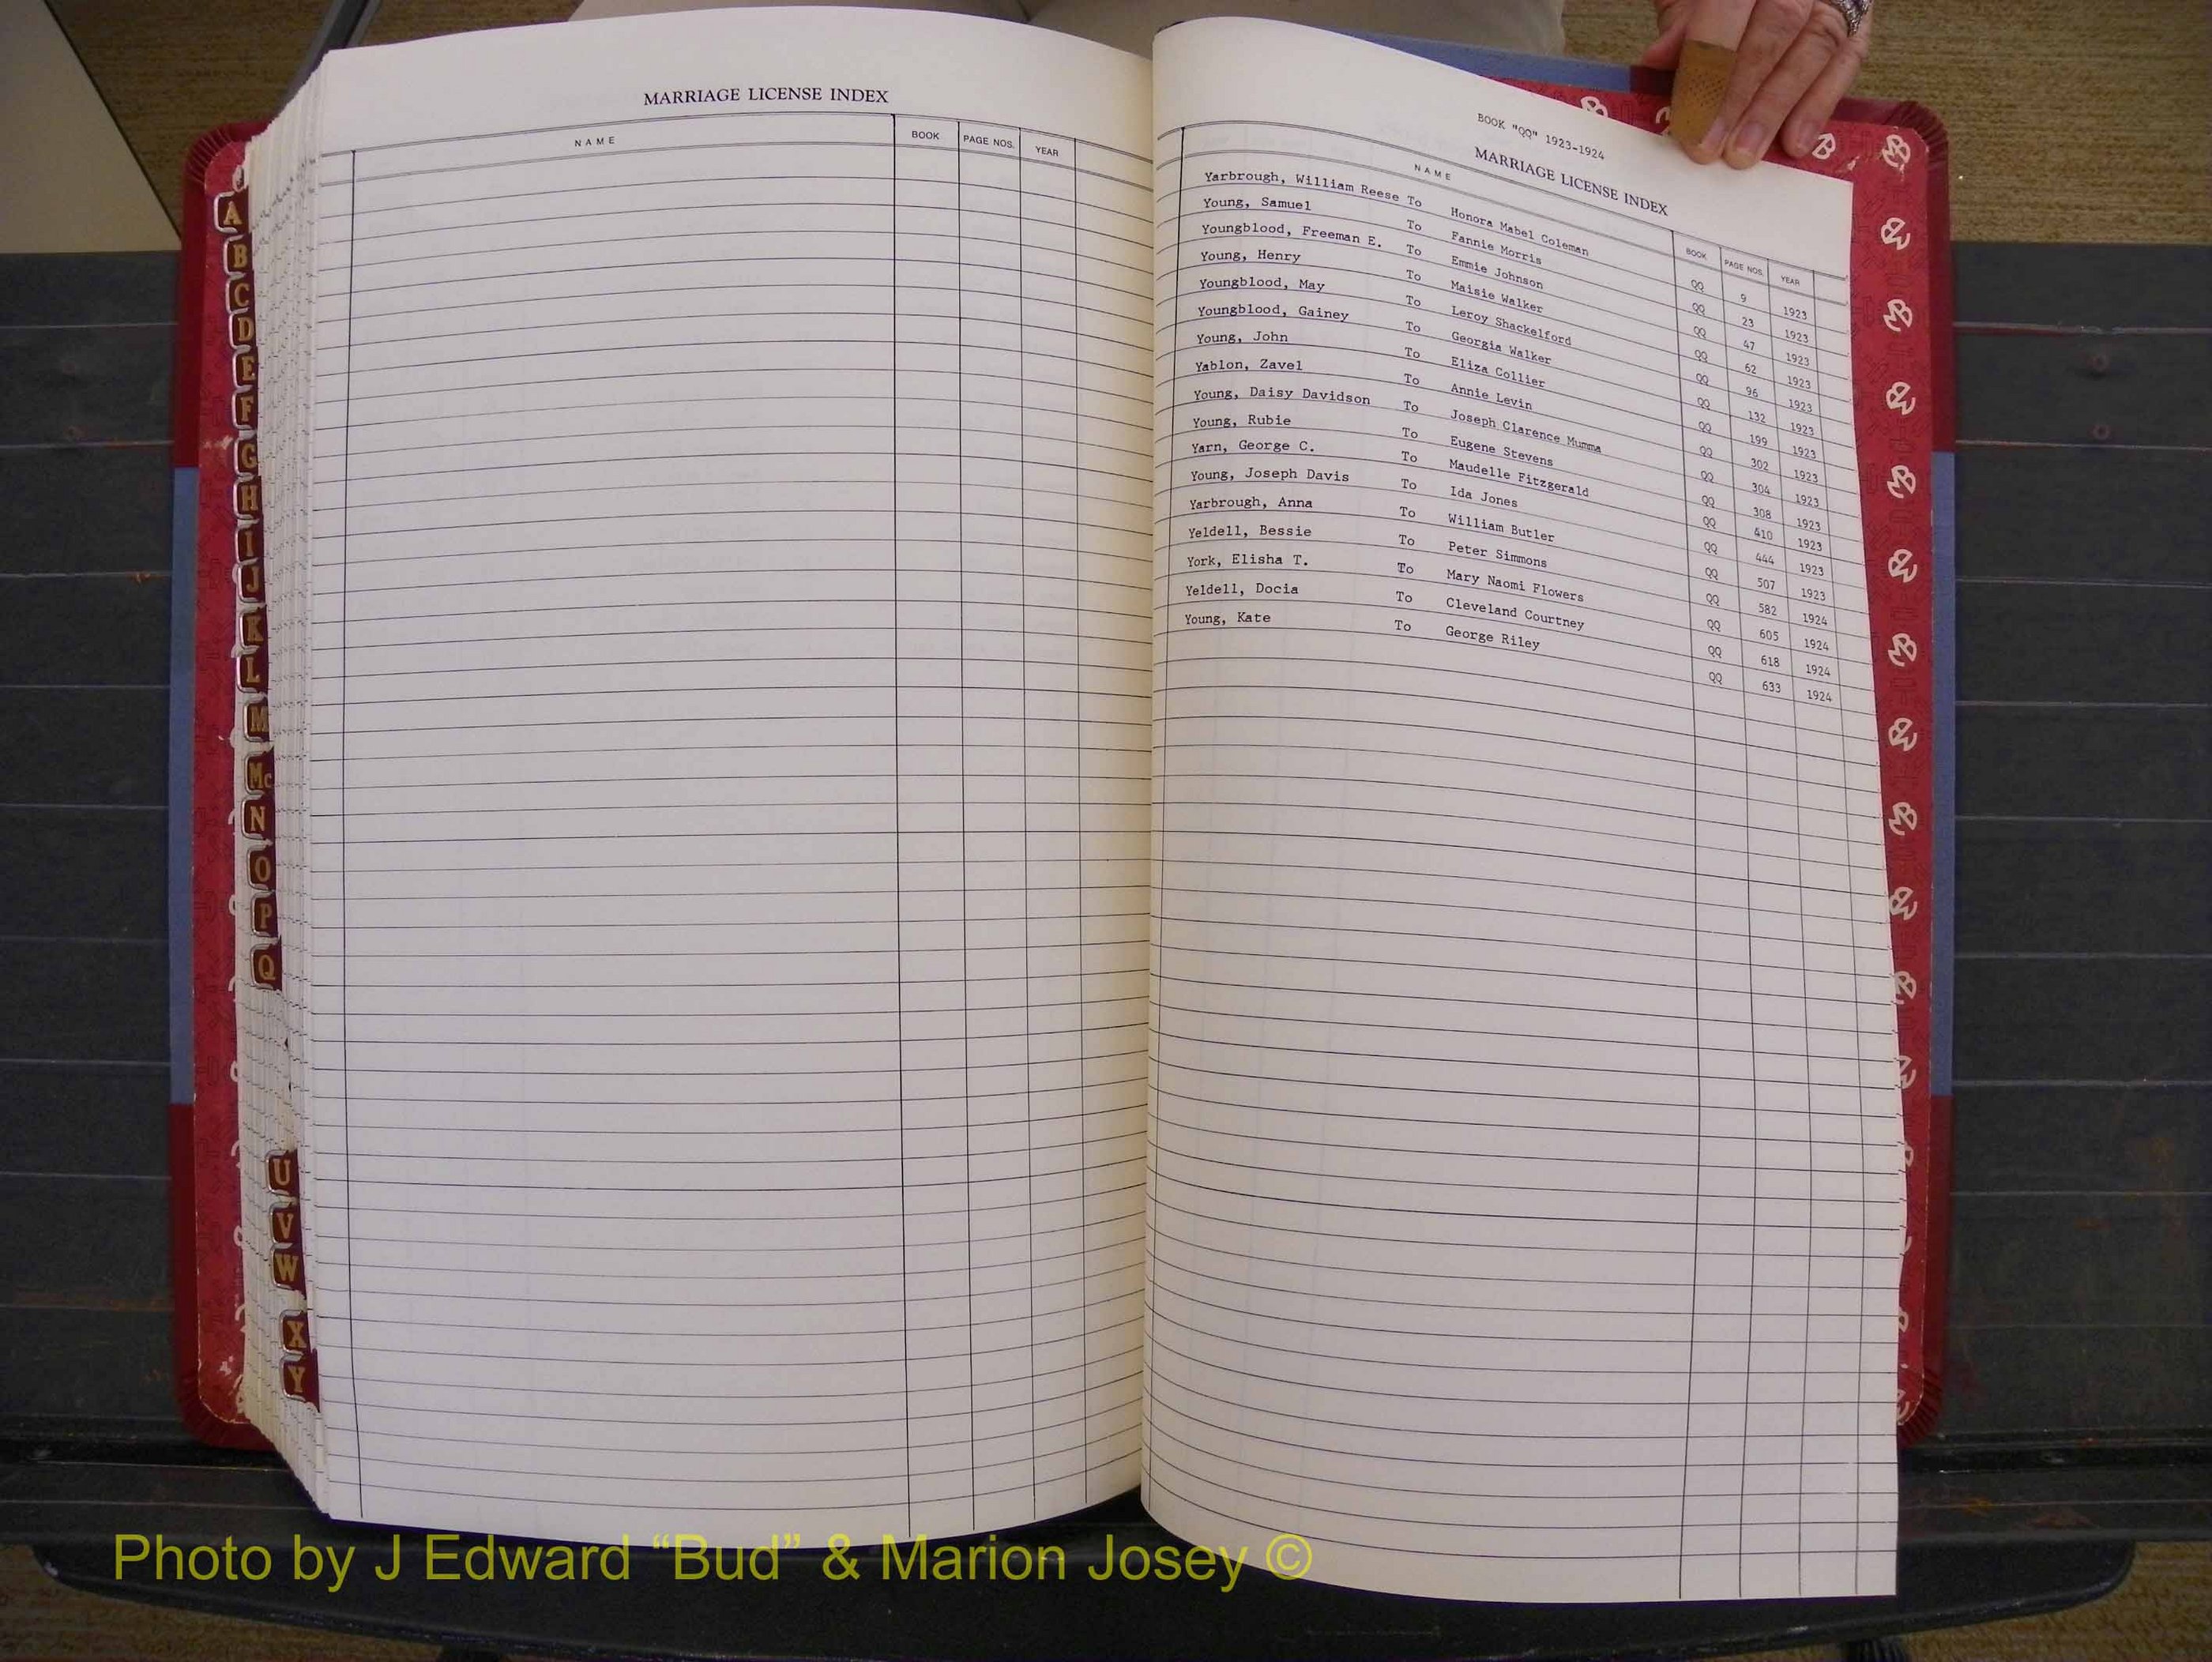 MARRIAGE LICENSE INDEX
NAME BOOK PAGE NOS. YEAR
A
B
C
D
E
F
G
H
I
J
K
L
M
Mc
N
O
P
Q
U
V
W
X
Y
BOOK "QQ" 1923-1924
MARRIAGE LICENSE INDEX
NAME BOOK PAGE NOS. YEAR
Yarbrough, William Reese To Honora Mabel Coleman QQ 9 1923
Young, Samuel To Fannie Morris QQ 23 1923
Youngblood, Freeman E. To Emmie Johnson QQ 47 1923
Young, Henry To Maisie Walker QQ 62 1923
Youngblood, May To Leroy Shackelford QQ 96 1923
Youngblood, Gainey To Georgia Walker QQ 132 1923
Young, John To Eliza Collier QQ 199 1923
Yablon, Zavel To Annie Levin QQ 302 1923
Young, Daisy Davidson To Joseph Clarence Mumma QQ 304 1923
Young, Rubie To Eugene Stevens QQ 308 1923
Yarn, George C. To Maudelle Fitzgerald QQ 410 1923
Young, Joseph Davis To Ida Jones QQ 444 1923
Yarbrough, Anna To William Butler QQ 507 1923
Yeldell, Bessie To Peter Simmons QQ 582 1924
York, Elisha T. To Mary Naomi Flowers QQ 605 1924
Yeldell, Docia To Cleveland Courtney QQ 618 1924
Young, Kate To George Riley QQ 633 1924
Photo by J Edward “Bud” & Marion Josey ©